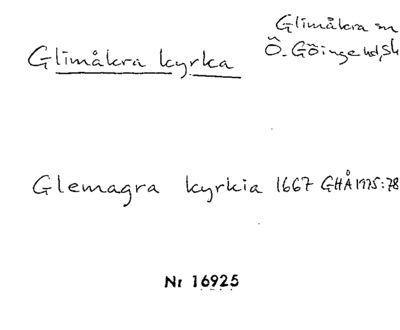 Glimåkra sn
Glimåkra kyrka
Ö. Göinge hd, Sk
Glemagra kyrkia 1667 GHÅ 1975:78
Nr 16925